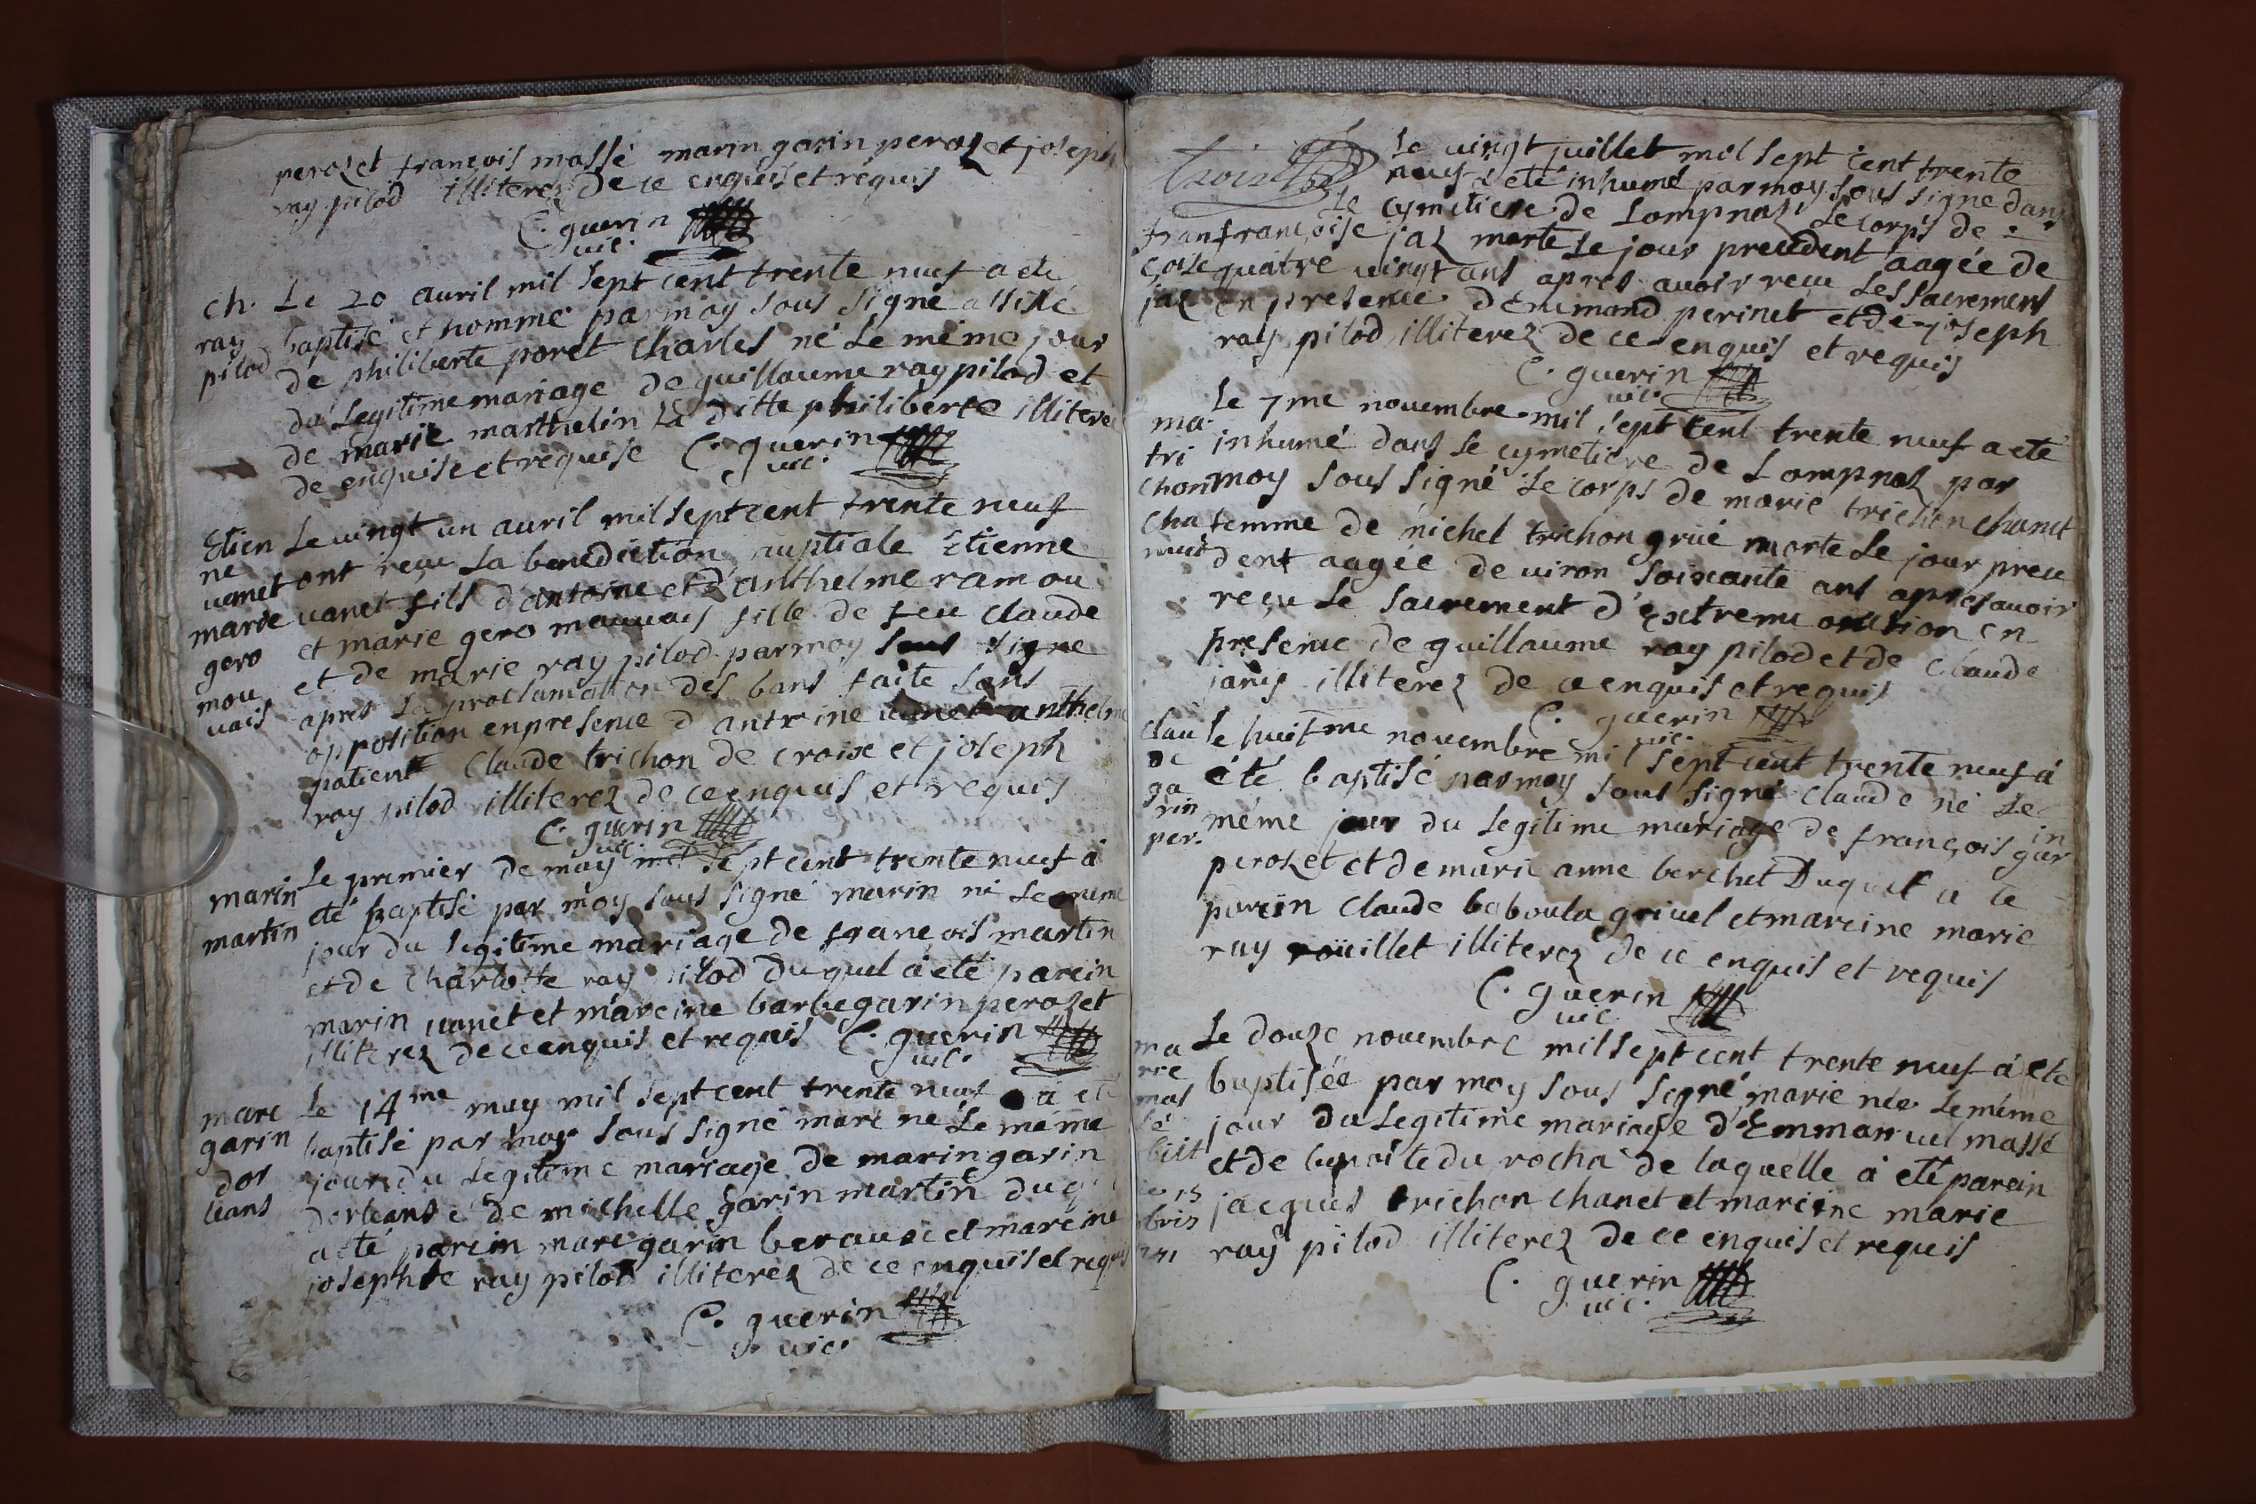 perozet françois massé marin garin perozet joseph
ray pilod illiterez de ce enquis et requis
C. guerin
vic.
ch. Le 20 avril mil sept cent trente neuf a eté
ray baptisé et nommé par moy sous signé assisté
pilod de philiberte poret Charles né le même jour
du Legitime mariage de guillaume ray pilod et
de marie marthelin La ditte philiberte illiteré
de enquise et requise C. guerin
vic.
Etien Le vingt un avril mil sept cent trente neuf
ne
vanet ont reçu La benediction nuptiale Etienne
marie vanet fils d'antoine et d'anthelme ramou
gero et marie gero mauvais fille de feu Claude
mou et de marie ray pilod par moy sous signe
vais apres La proclamation des bans faite sans
opposition en presence d antoine vanet anthelme
patient Claude trichon de Croix et joseph
ray pilod illiterez de ce enquis et requis
C. guerin
vic.
marin Le premier de may mil sept cent trente neuf à
martin eté baptisé par moy sous signé marin né Le meme
jour du legitime mariage de françois martin
et de Charlotte ray pilod du quel à eté parein
marin vanet et mareine barbe garin perozet
illiterez de ce enquis et requis C. guerin
vic.
marc Le 14me may mil sept cent trente neuf a eté
garin baptisé par moy sous signé marc né Le même
dor jour du Legitime mariage de marin garin
leans dorleans et de michelle garin martin du q
a eté parein marc garin beraux et mareine
josephte ray pilot illiterez de ce enquis et requis
C. guerin
vic.
trois
Le vingt juillet mil sept cent trente
neuf a eté inhumé par moy sous signe dans
Le cymetiere de Lompnaz Le corps de
fran françoise jaz morte Le jour precedent aagée de
çoise quatre vingt ans apres avoir reçu Les sacrements
jaz en presence d'emmand perinet et de joseph
ray pilod illiterez de ce enquis et requis
C. guerin
vic.
Le 7me novembre mil sept cent trente neuf a eté
ma inhumé dans Le cymetiere de Lompnaz par
tri
chon moy sous signé Le corps de marie trichon chanet
cha femme de michel trichon grüé morte Le jour prece
dent aagée de viron soixante ans apres avoir
reçu Le sacrement d'extreme onction en
presence de guillaume ray pilod et de Claude
janis illiterez de ce enquis et requis
C. guerin
vic.
clau Le huitme novembre mil sept cent trente neuf à
de
ga été baptisé par moy sous signé Claude né Le
rin
per. même jour du Legitime mariage de françois gar
in
perozet et de marie anne berchet Duquel a eté
parein Claude baboula grivel et mareine marie
ray rouillet illiterez de ce enquis et requis
C. guerin
vic.
ma Le douze novembre mil sept cent trente neuf à eté
rie baptisée par moy sous signé marie née Le même
mas
sé jour du Legitime mariage d'Emmanuel massé
et de benoite du rocha de laquelle à eté parein
jacques trichon chanet et mareine marie
ray pilod illiterez de ce enquis et requis
C. guerin
vic.